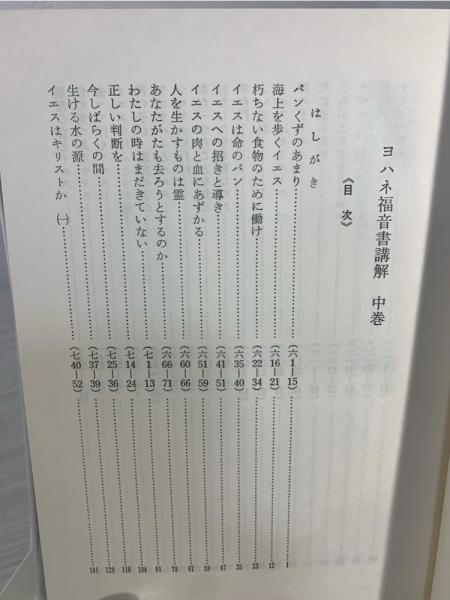 ヨハネ福音書講解 中巻
《目次》
はしがき
パンくずのあまり……(六1―15)……1
海上を歩くイエス……(六16―21)……12
朽ちない食物のために働け……(六22―34)……23
イエスは命のパン……(六35―40)……35
イエスへの招きと導き……(六41―51)……47
イエスの肉と血にあずかる……(六51―59)……59
人を生かすものは霊……(六60―66)……67
あなたがたも去ろうとするのか……(六66―71)……79
わたしの時はまだきていない……(七1―13)……91
正しい判断を……(七14―24)……104
今しばらくの間……(七25―36)……116
生ける水の源……(七37―39)……129
イエスはキリストか ㈠……(七40―52)……141